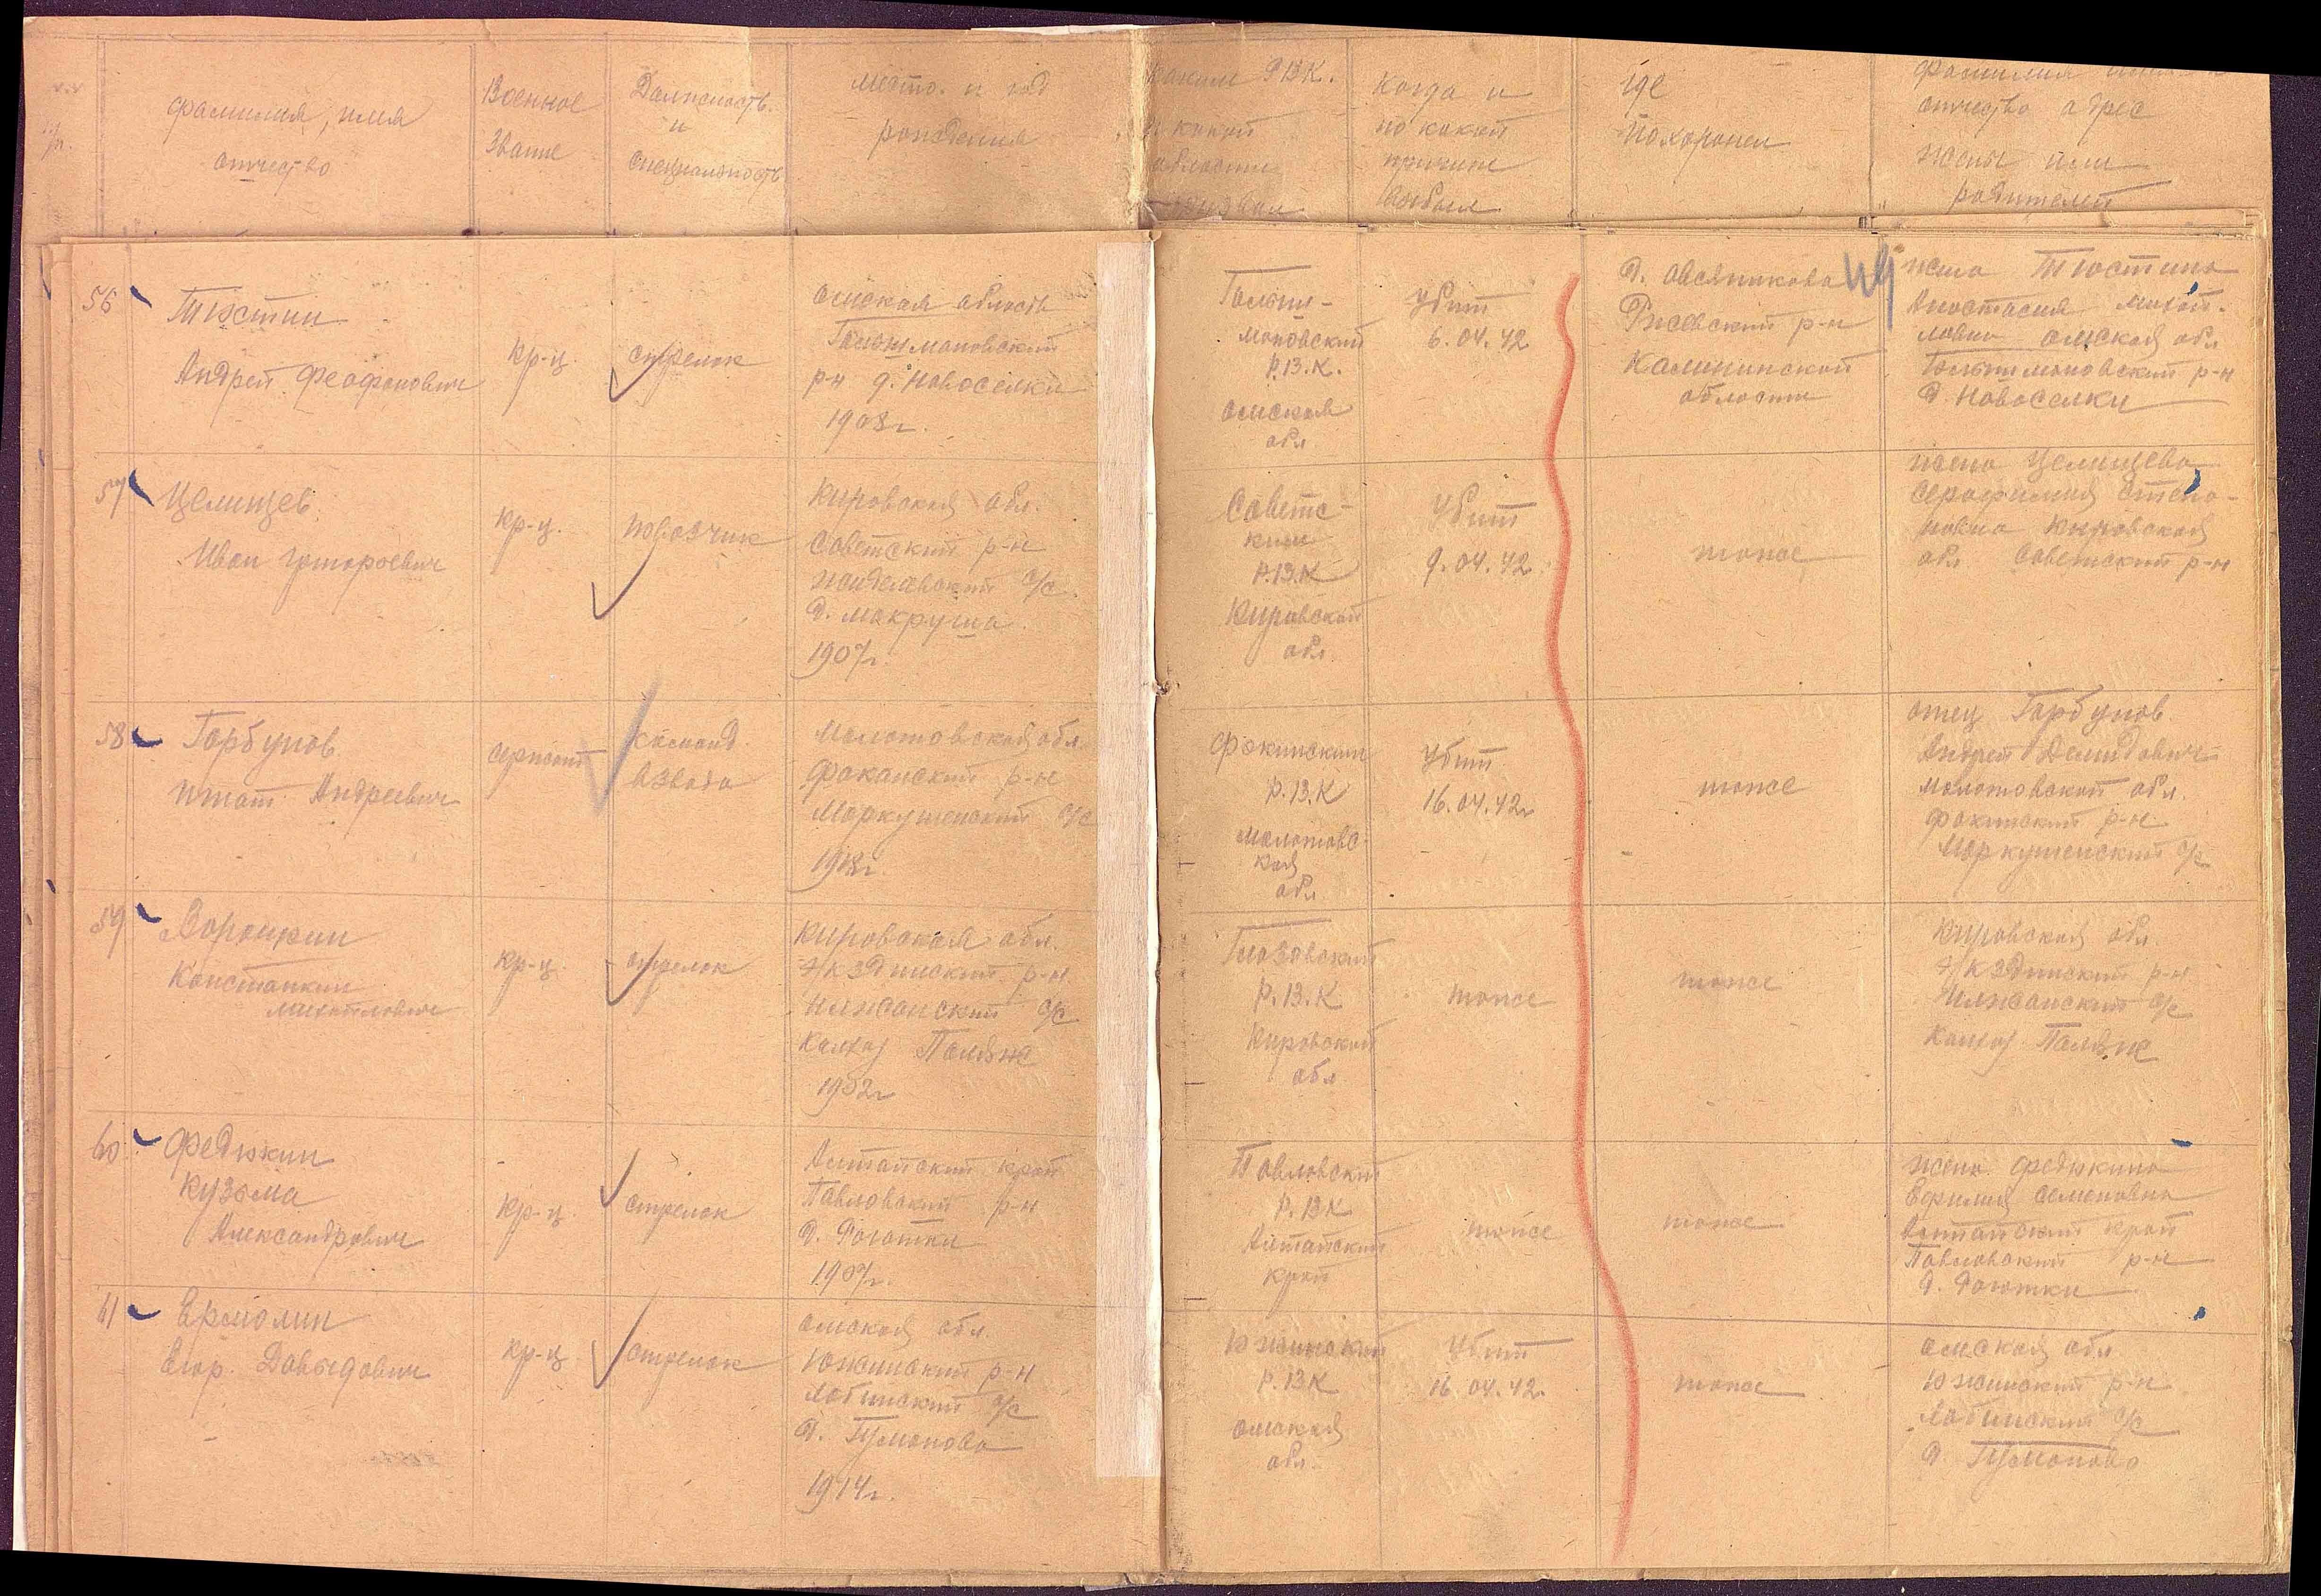 фамилия, имя
отчество
Военное
звание
Должность
и
специальность
место и год
рождения
каким РВК.
и какой
области
призван
Когда и
по какой
причине
выбыл
где
похоронен
фамилия имя
отчество адрес
жены или
родителей
56
Тюстин
Андрей Феофанович
кр-ц
стрелок
Омская область
Голышмановский
р-н д. Новоселки
1908г.
Голыш-
мановский
Р.В.К.
Омская
обл
Убит
6.04.42
д. Овсяникова
Ржевский р-н
Калининской
области
жена Тюстина
Анастасия Михай-
ловна Омская обл
Голышмановский р-н
д. Новоселки
57
Целищев
Иван Григорьевич
кр-ц.
повозчик
Кировская обл.
Советский р-н
с/с.
д. Мокруша.
1907г.
Советс-
кий
Р.В.К
Кировской
обл
Убит
9.04.42.
тоже
жена Целищева
Серафимия Степа-
новна Кировская
обл Советский р-н
58
Горбунов
Игнат Андреевич
сержант
команд.
взвода
Молотовская обл.
Фокинский р-н
Маркушенский с/с
1918г.
Фокинский
Р.В.К
Молотовс-
кая
обл
Убит
16.04.42г
тоже
отец Горбунов
Андрей Демидович
Молотовской обл.
Фокинский р-н
Маркушенский с/с
59
Константин
Михайлович
кр-ц.
стрелок
Кировская обл.
р-н
с/с
Колхоз
1902г
Глазовский
Р.В.К
Кировской
обл
тоже
тоже
Кировская обл
р-н
с/с
Колхоз
60
Федюкин
Кузьма
Александрович
кр-ц.
стрелок
Алтайский край
Павловский р-н
д. Рогатки
1907г.
Павловский
Р.В.К
Алтайский
край
тоже
тоже
жена Федюкина
Семеновна
Алтайский край
Павловский р-н
д.
61
Ермолин
Егор Давыдович
кр-ц
стрелок
Омская обл.
Южинский р-н
Лобинский с/с
д. Туманова
1914г.
Южинский
Р.В.К
Омская
обл.
Убит
16.04.42.
тоже
Омская обл
Южинский р-н
Лобинский с/с
д. Туманова